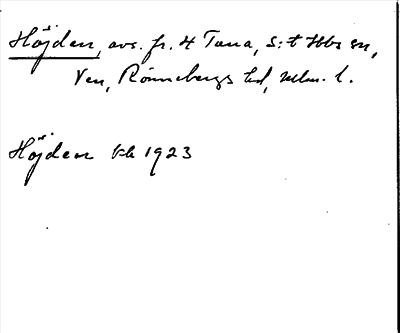 Höjden, avs. fr. H Tuna, S:t Ibbs sn,
Ven, Rönnebergs hd, Mlm. l.
Höjden kk 1923